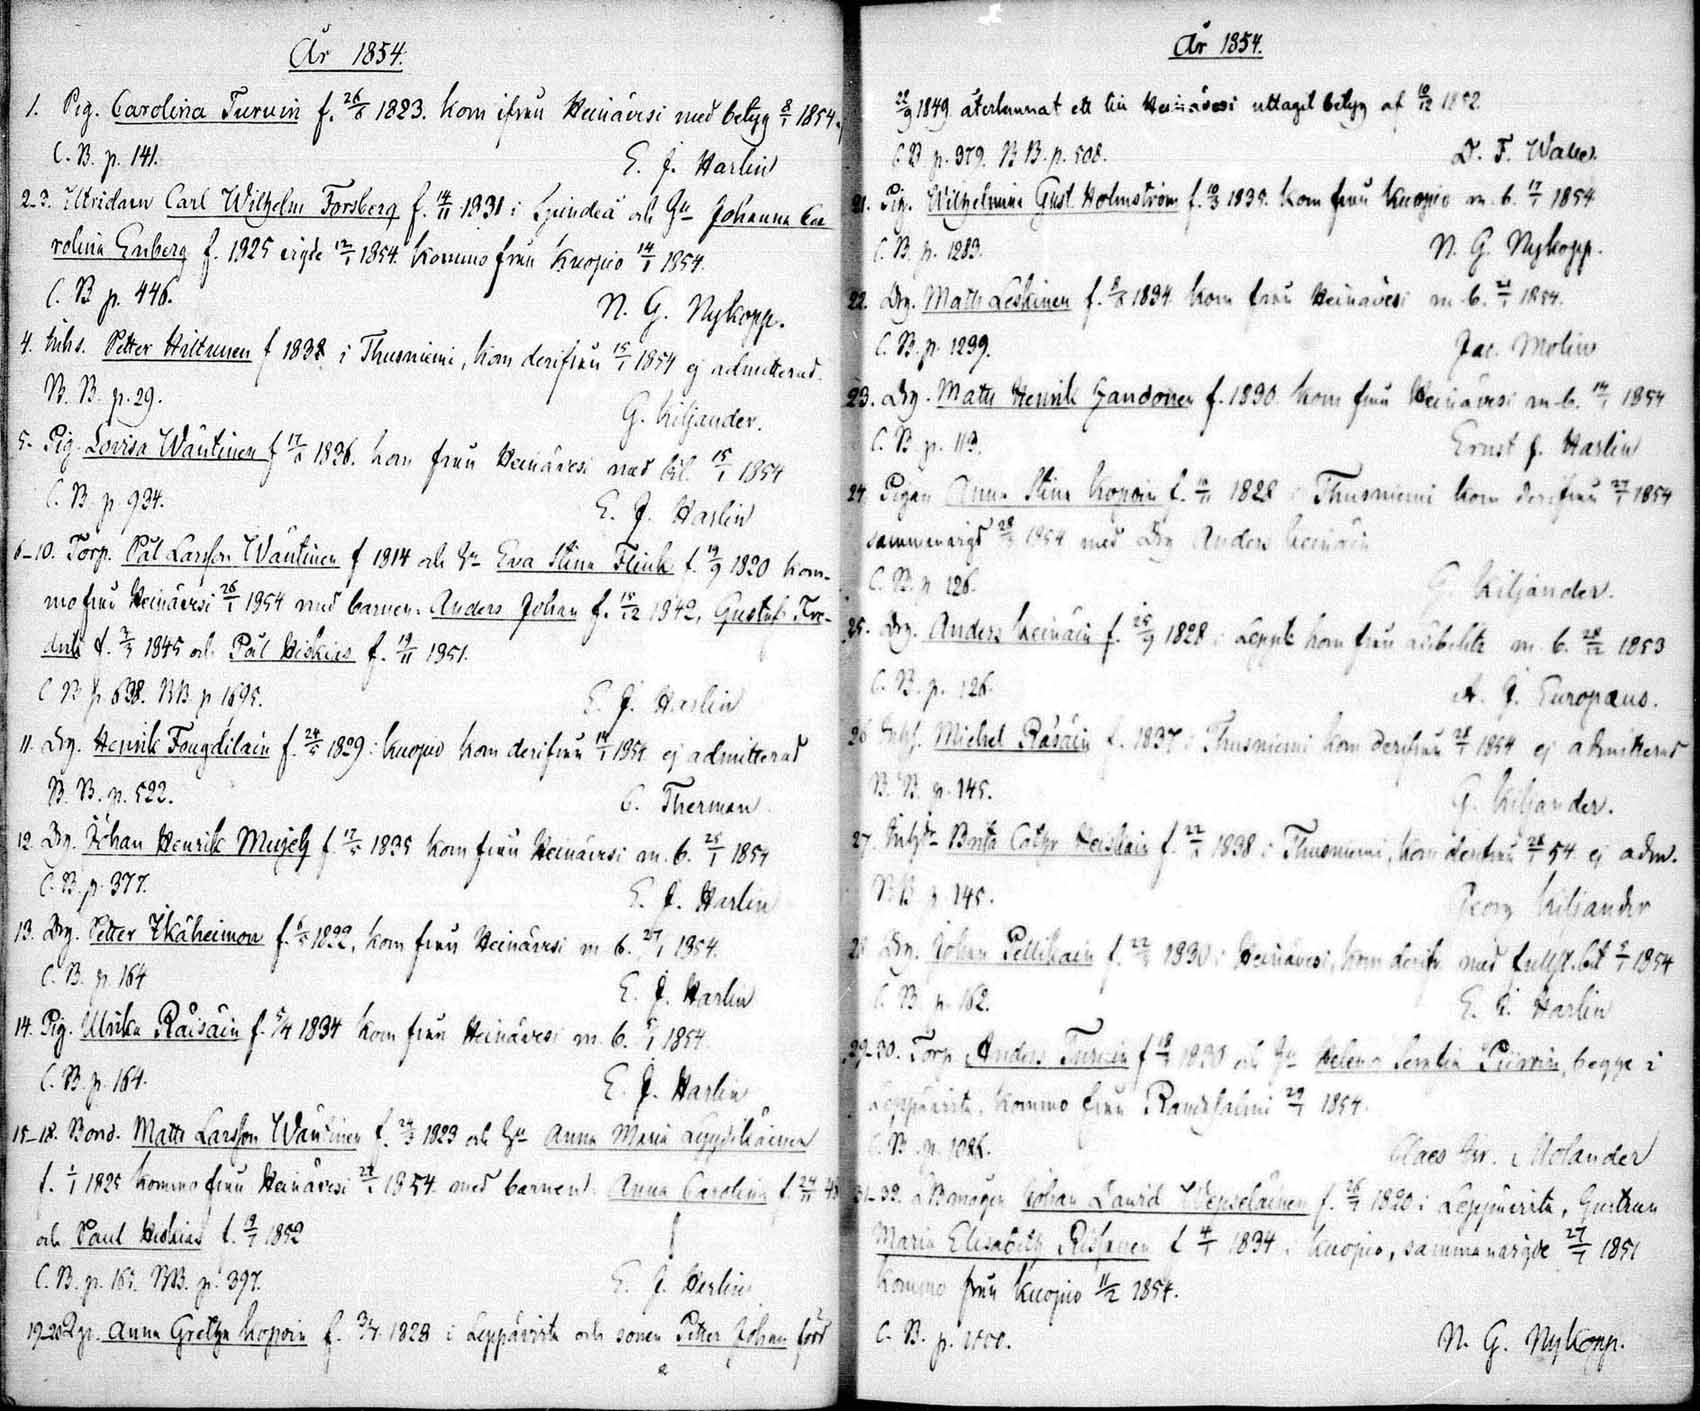 År 1854.
1. Pig. Carolina Turuin f. 26/8 1823. kom ifrån Heinävesi med betyg 8/1 1854.
C. B. p. 141.
E. J. Harlin
2-3. Utridarn Carl Wilhelm Forsberg f. 14/11 1831 i och Hu Johanna Ca
rolina Enberg f. 1825 vigde 12/1 1854. kommo från Kuopio 14/1 1854.
C. B. p. 446.
N. G. Nykopp.
4. Inhs. Petter Hiltunen f 1838 i Thusniemi, kom derifrån 15/1 1854 ej admitterad.
B. B. p. 29.
G. Kiljander.
5. Pig. Lovisa Wäntinen f 17/6 1836. kom från Heinävesi med 15/1 1854
C. B. p. 934.
E. J. Harlin
6-10. Torp. Pål Larsson Wäntinen f 1814 och Hu Eva Stina Flink f. 19/9 1820 kom-
mo från Heinävesi 26/1 1854 med barnen. Anders Johan f. 15/12 1842, Gustaf Fre-
drik f. 2/3 1845 och Pål Hiskias f. 19/11 1851.
C B p. 638. BB p 1695.
E. J. Harlin
11. Drg. Henrik Fougdilain f. 24/5 1829 i Kuopio kom derifrån 14/1 1854 ej admitterad
B. B. p. 522.
C. Therman.
12. Drg. Johan Henrik Mujelj f. 17/5 1835 kom från Heinävesi m. b. 25/1 1854
C. B. p. 377.
E. J. Harlin
13. Drg. Petter Ikäheimon f. 6/5 1832, kom från Heinävesi m b. 27/1 1854.
C. B. p. 164
E. J. Harlin
14. Pig. Ulrika Räisäin f. 5/4 1834 kom från Heinävesi m. b. 5/1 1854.
C. B. p. 164.
E. J. Harlin
15-18. Bond. Matts Larsson Wäntinen f. 24/3 1823 och Hu Anna Maria
f. 1/1 1825 kommo från Heinävesi 1854. med barnen. Anna Carolina f. 24/11 48
och Paul Hiskias f. 9/1 1852
C. B. p. 165. BB. p. 397.
E. J. Harlin
19-20 Anna Gretha Kopoin f. 1828 i Leppävirta och sonen Petter Johan född
År 1854.
22/9 1849. återlemnat ett till Heinävesi uttaget betyg af 10/12 1852.
C B p. 379. B B. p. 508.
D. F. Walle.
21. Pig. Wilhelmina Gust. Holmström f. 10/3 1835. kom från Kuopio m. b. 17/1 1854
C. B. p. 1283.
N. G. Nykopp.
22. Drg. Matts Leskinen f. 1834 kom från Heinävesi m. b. 21/1 1854.
C. B. p. 1299.
Jac. Molin
23. Drg. Matts Henrik Gandonen f. 1830. kom från Heinävesi m. b. 14/1 1854
C. B. p. 113.
Ernst J. Harlin
24. Pigan Anna Stina Kopoin f. 1828 i Thusniemi kom derifrån 27/1 1854
sammanvigd 28/ 1854 med Drg Anders Keinäin
C. B. p. 126.
G. Kiljander.
25. Drg. Anders Keinäin f. 25/9 1828 i kom från m. b. 28/12 1853
C. B. p. 126.
A. J. Europæus.
26 Inhs. Michel Räsäin f. 1837 i Thusniemi kom derifrån 28/1 1854 ej admitterad
B. B. p. 145.
G. Kiljander.
27. Brita Cathr Heiskain f. 1838 i Thusniemi, kom derifrån 28/1 54 ej adm.
B B p. 145.
Georg Kiljander
28. Drg. Johan Pellikain f. 1830 i Heinävesi, kom derifr. med 1854
C. B. p. 162.
E. J. Harlin
29-30. Torp Anders Turuin f 1830 och Hu Helena begge i
Leppävirta, kommo från Randasalmi 29/1 1854.
C. B. p. 1086.
Claes Gr. Molander
31-32. Johan Lavrid Wepseläinen f. 26/ 1820 i Leppävirta, hustrun
Maria Elisabeth f 4/1 1834 i Kuopio, sammanvigde 27/ 1851
kommo från Kuopio 11/2 1854.
C. B. p. 1500.
N. G. Nykopp.